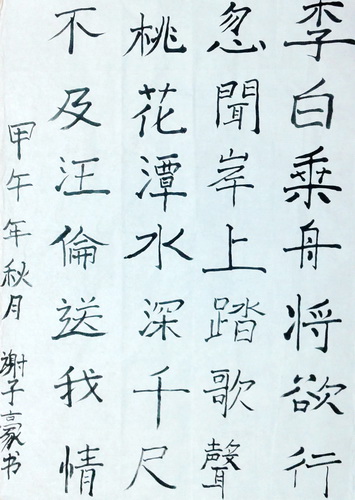 李白乘舟将欲行
忽聞岸上踏歌聲
桃花潭水深千尺
不及汪倫送我情
甲午年秋月 謝子豪书